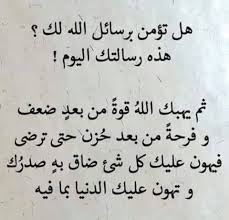 هل تؤمن برسائل الله لك ؟
هذه رسالتك اليوم !
ثم يهبك اللهُ قوةً من بعدٍ ضعف
و فرحةً من بعد حُزن حتى ترضى
فيهون عليك كل شئ ضاق بهِ صدرُك
و تهون عليك الدنيا بما فيه